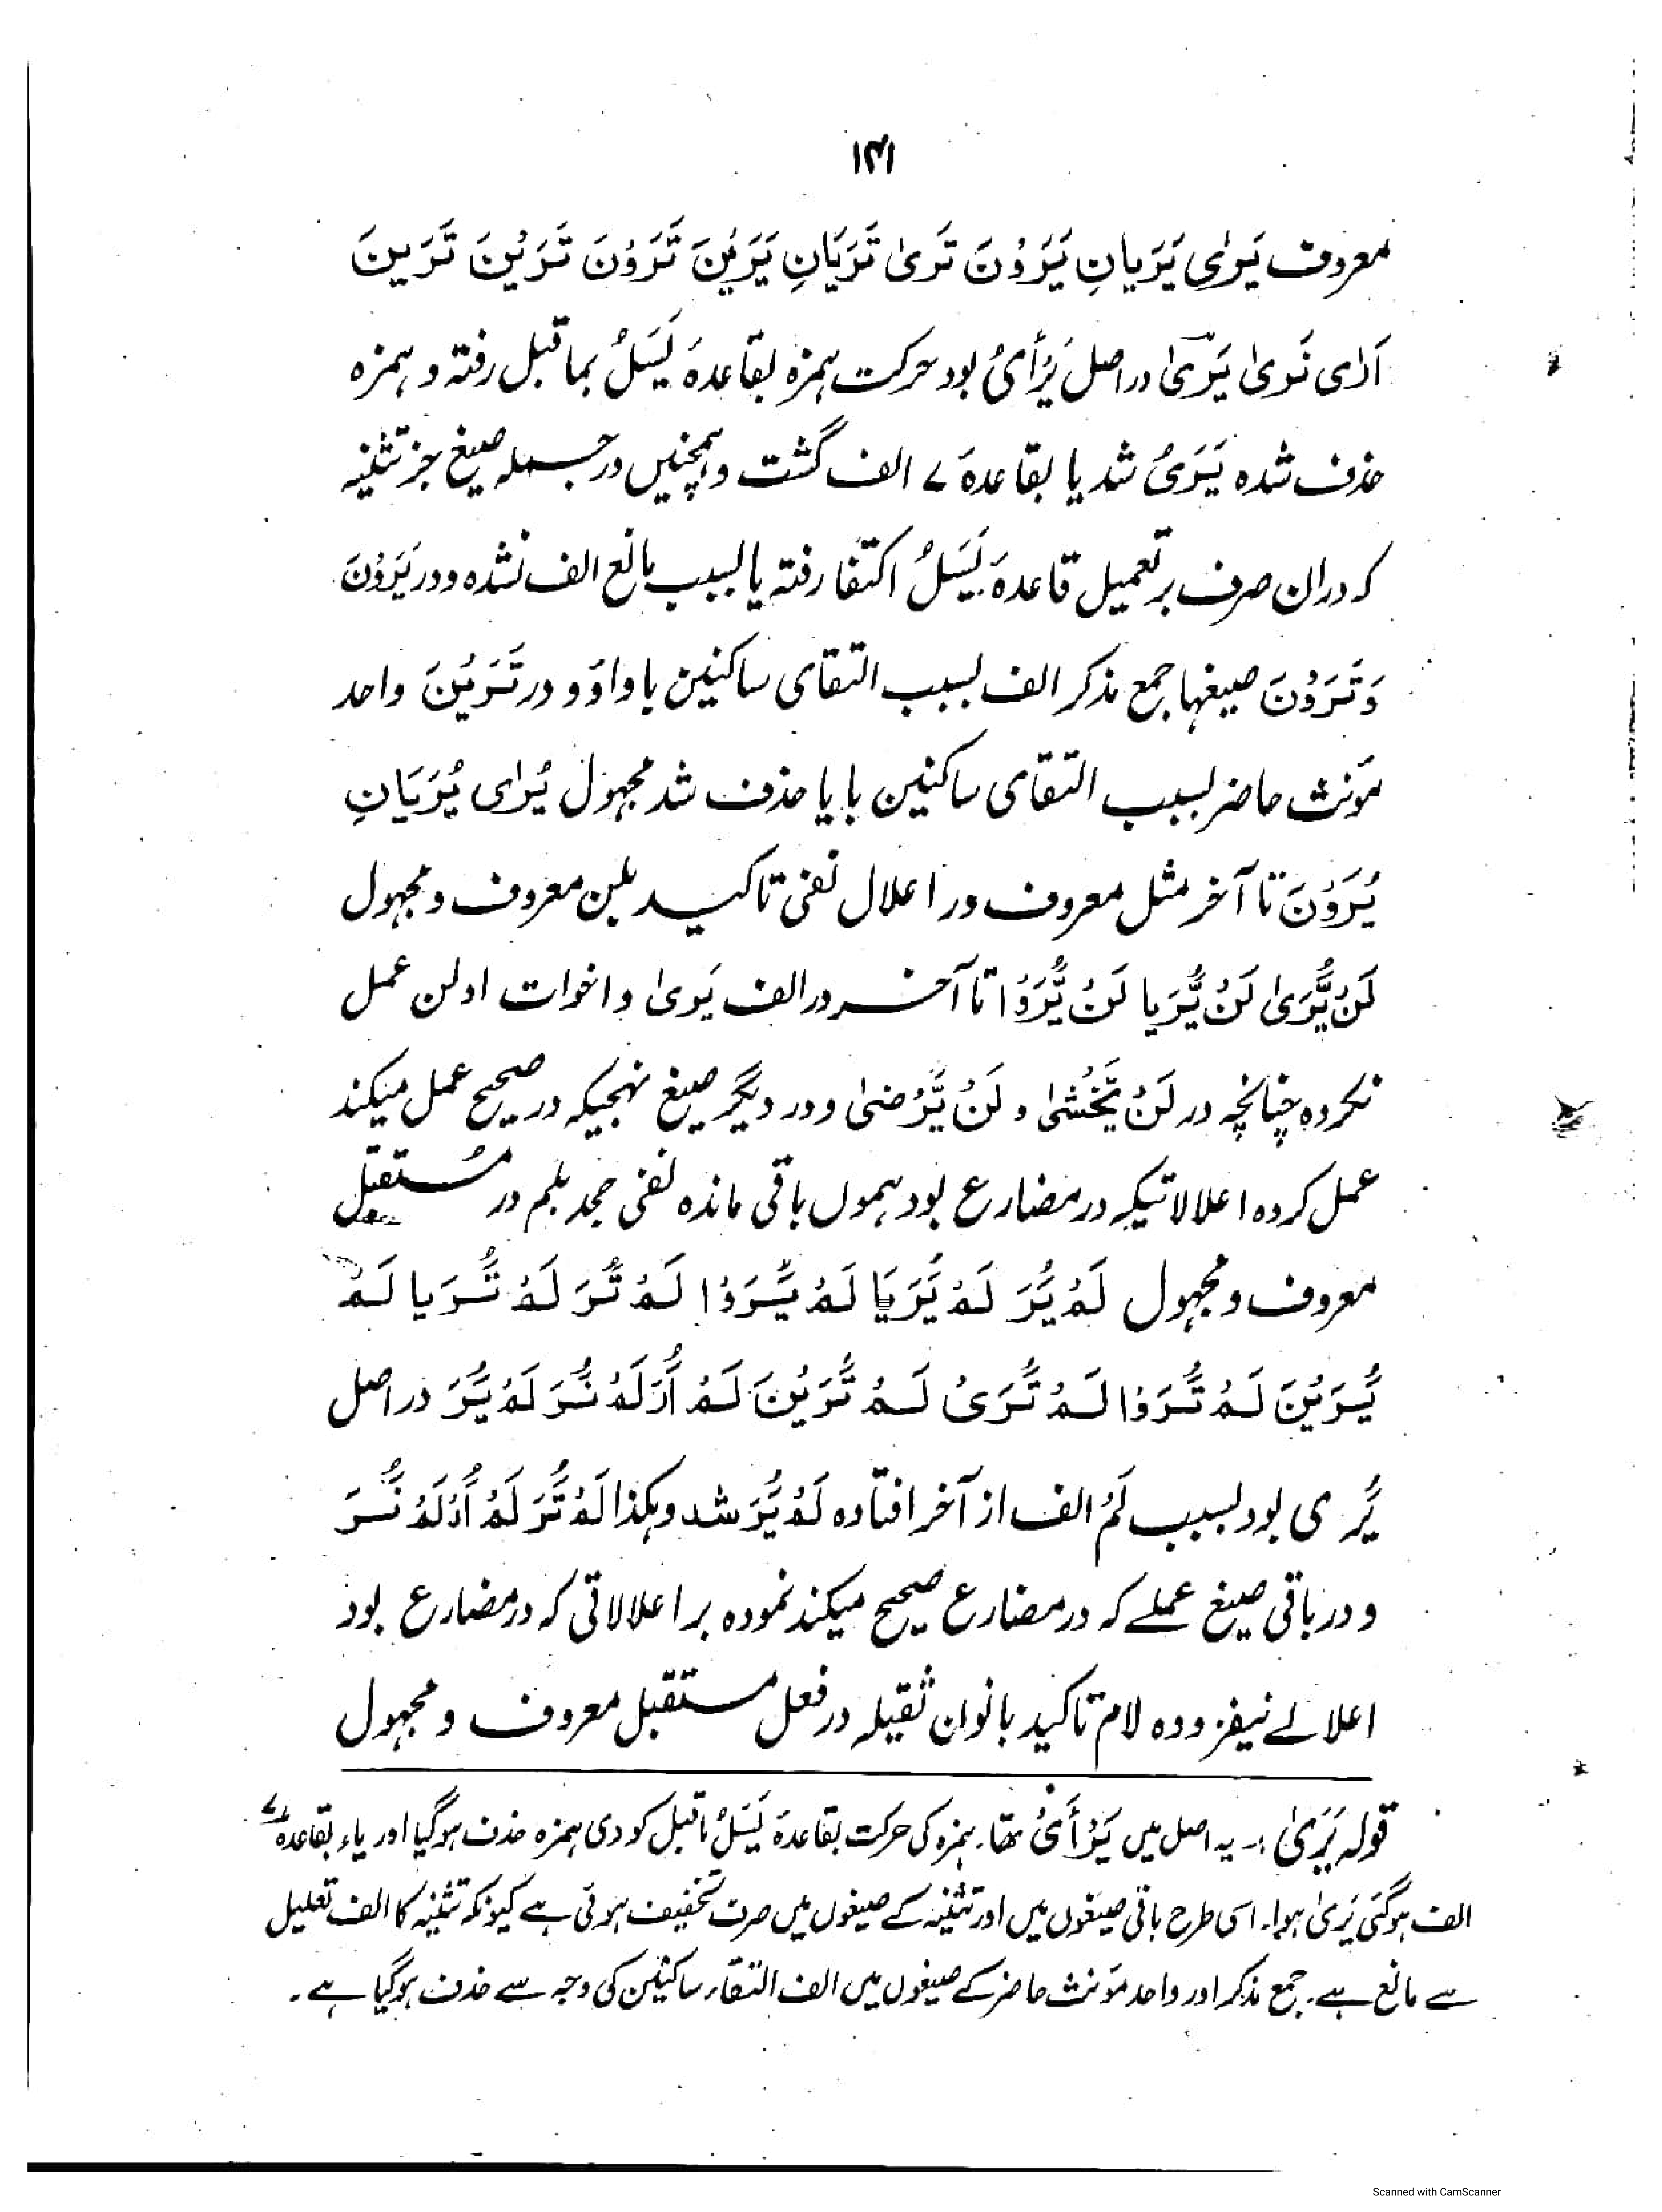 ۱۴۱
معروف یَرٰی یَرَیانِ یَرَوْنَ تَریٰ تَرَیَانِ یَرَیْنَ تَرَوْنَ تَرَیْنَ تَرَینَ
اَرٰی نَریٰ یَرَیٰ دراصل یَرْأَیُ بود حرکت ہمزہ بقاعدۂ یَسَلُ بماقبل رفتہ و ہمزہ
حذف شدہ یَرَیُ شد یا بقاعدۂ ۷ الف گشت وہمچنیں درجملہ صیغ جز تثنیہ
کہ دران صرف بر تعمیل قاعدۂ یَسَلُ اکتفا رفتہ یا بسبب مانع الف نشدہ و در یَرَوْنَ
وَتَرَوْنَ صیغہا جمع مذکر الف بسبب التقای ساکنین با واو و در تَرَیْنَ واحد
مؤنث حاضر بسبب التقای ساکنین با یا حذف شد مجہول یُرٰی یُرَیَانِ
یُرَوْنَ تا آخر مثل معروف در اعلال نفی تاکید بلن معروف و مجہول
لَنْ یَُّریٰ لَنْ یَُّرَیا لَنْ یَُّرَوْا تا آخر در الف یَریٰ و اخوات او لن عمل
نکردہ چنانچہ در لَنْ یَّخْشیٰ و لَنْ یَّرْضیٰ و در دیگر صیغ نہجیکہ در صحیح عمل میکند
عمل کردہ اعلالاتیکہ در مضارع بود ہموں باقی ماندہ نفی جحد بلم در مُستقبل
معروف و مجہول لَمْ یَُرَ لَمْ یَُرَیَا لَمْ یَُرَوْا لَمْ تَُرَ لَمْ تَُرَیا لَمْ
یَُرَیْنَ لَمْ تَُرَوْا لَمْ تَُرَیْ لَمْ تَُرَیْنَ لَمْ اَُرَ لَمْ نَُرَ لَمْ یَُرَ دراصل
یَُریٰ بود بسبب لَمْ الف از آخر افتادہ لَمْ یَُرَ شد وہکذا لَمْ تَُرَ لَمْ اَُرَ لَمْ نَُرَ
و در باقی صیغ عملے کہ در مضارع صحیح میکند نمودہ بر اعلالاتی کہ در مضارع بود
اعلالے نیفزودہ لام تاکید بانون ثقیلہ در فعل مستقبل معروف و مجہول
قولہ یَرَیٰ :۔ یہ اصل میں یَرْأَیُ تھا۔ ہمزہ کی حرکت بقاعدۂ یَسَلُ ماقبل کو دی ہمزہ حذف ہوگیا اور یاء بقاعدہ ۷
الف ہوگئی یَریٰ ہوا۔ اسی طرح باقی صیغوں میں اور تثنیہ کے صیغوں میں صرف تخفیف ہوئی ہے کیونکہ تثنیہ کا الف تعلیل
سے مانع ہے۔ جمع مذکر اور واحد مؤنث حاضر کے صیغوں میں الف التقاء ساکنین کی وجہ سے حذف ہوگیا ہے۔
Scanned with CamScanner